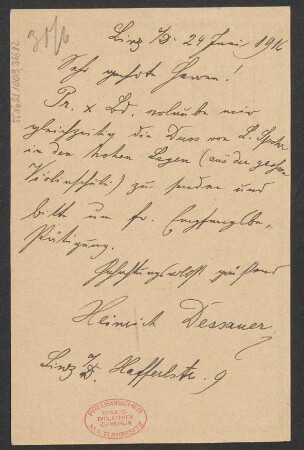 30/6
55 Nachl 100/B, 3682
Linz a/D. 24 Juni 1916
Sehr geehrte Herren!
Pr. x Bd. erlaube mir
gleichzeitig die Duos von L. Spohr
in den hohen Lagen (aus der grossen
Violinschule) zu senden und
bitte um fr. Empfangsbe-
stätigung.
Hochachtungsvollst grüssend
Heinrich Dessauer
Linz a/D. Hafferlstr. 9
PREUSSISCHER
STAATS-
BIBLIOTHEK
ZU BERLIN
KULTURBESITZ